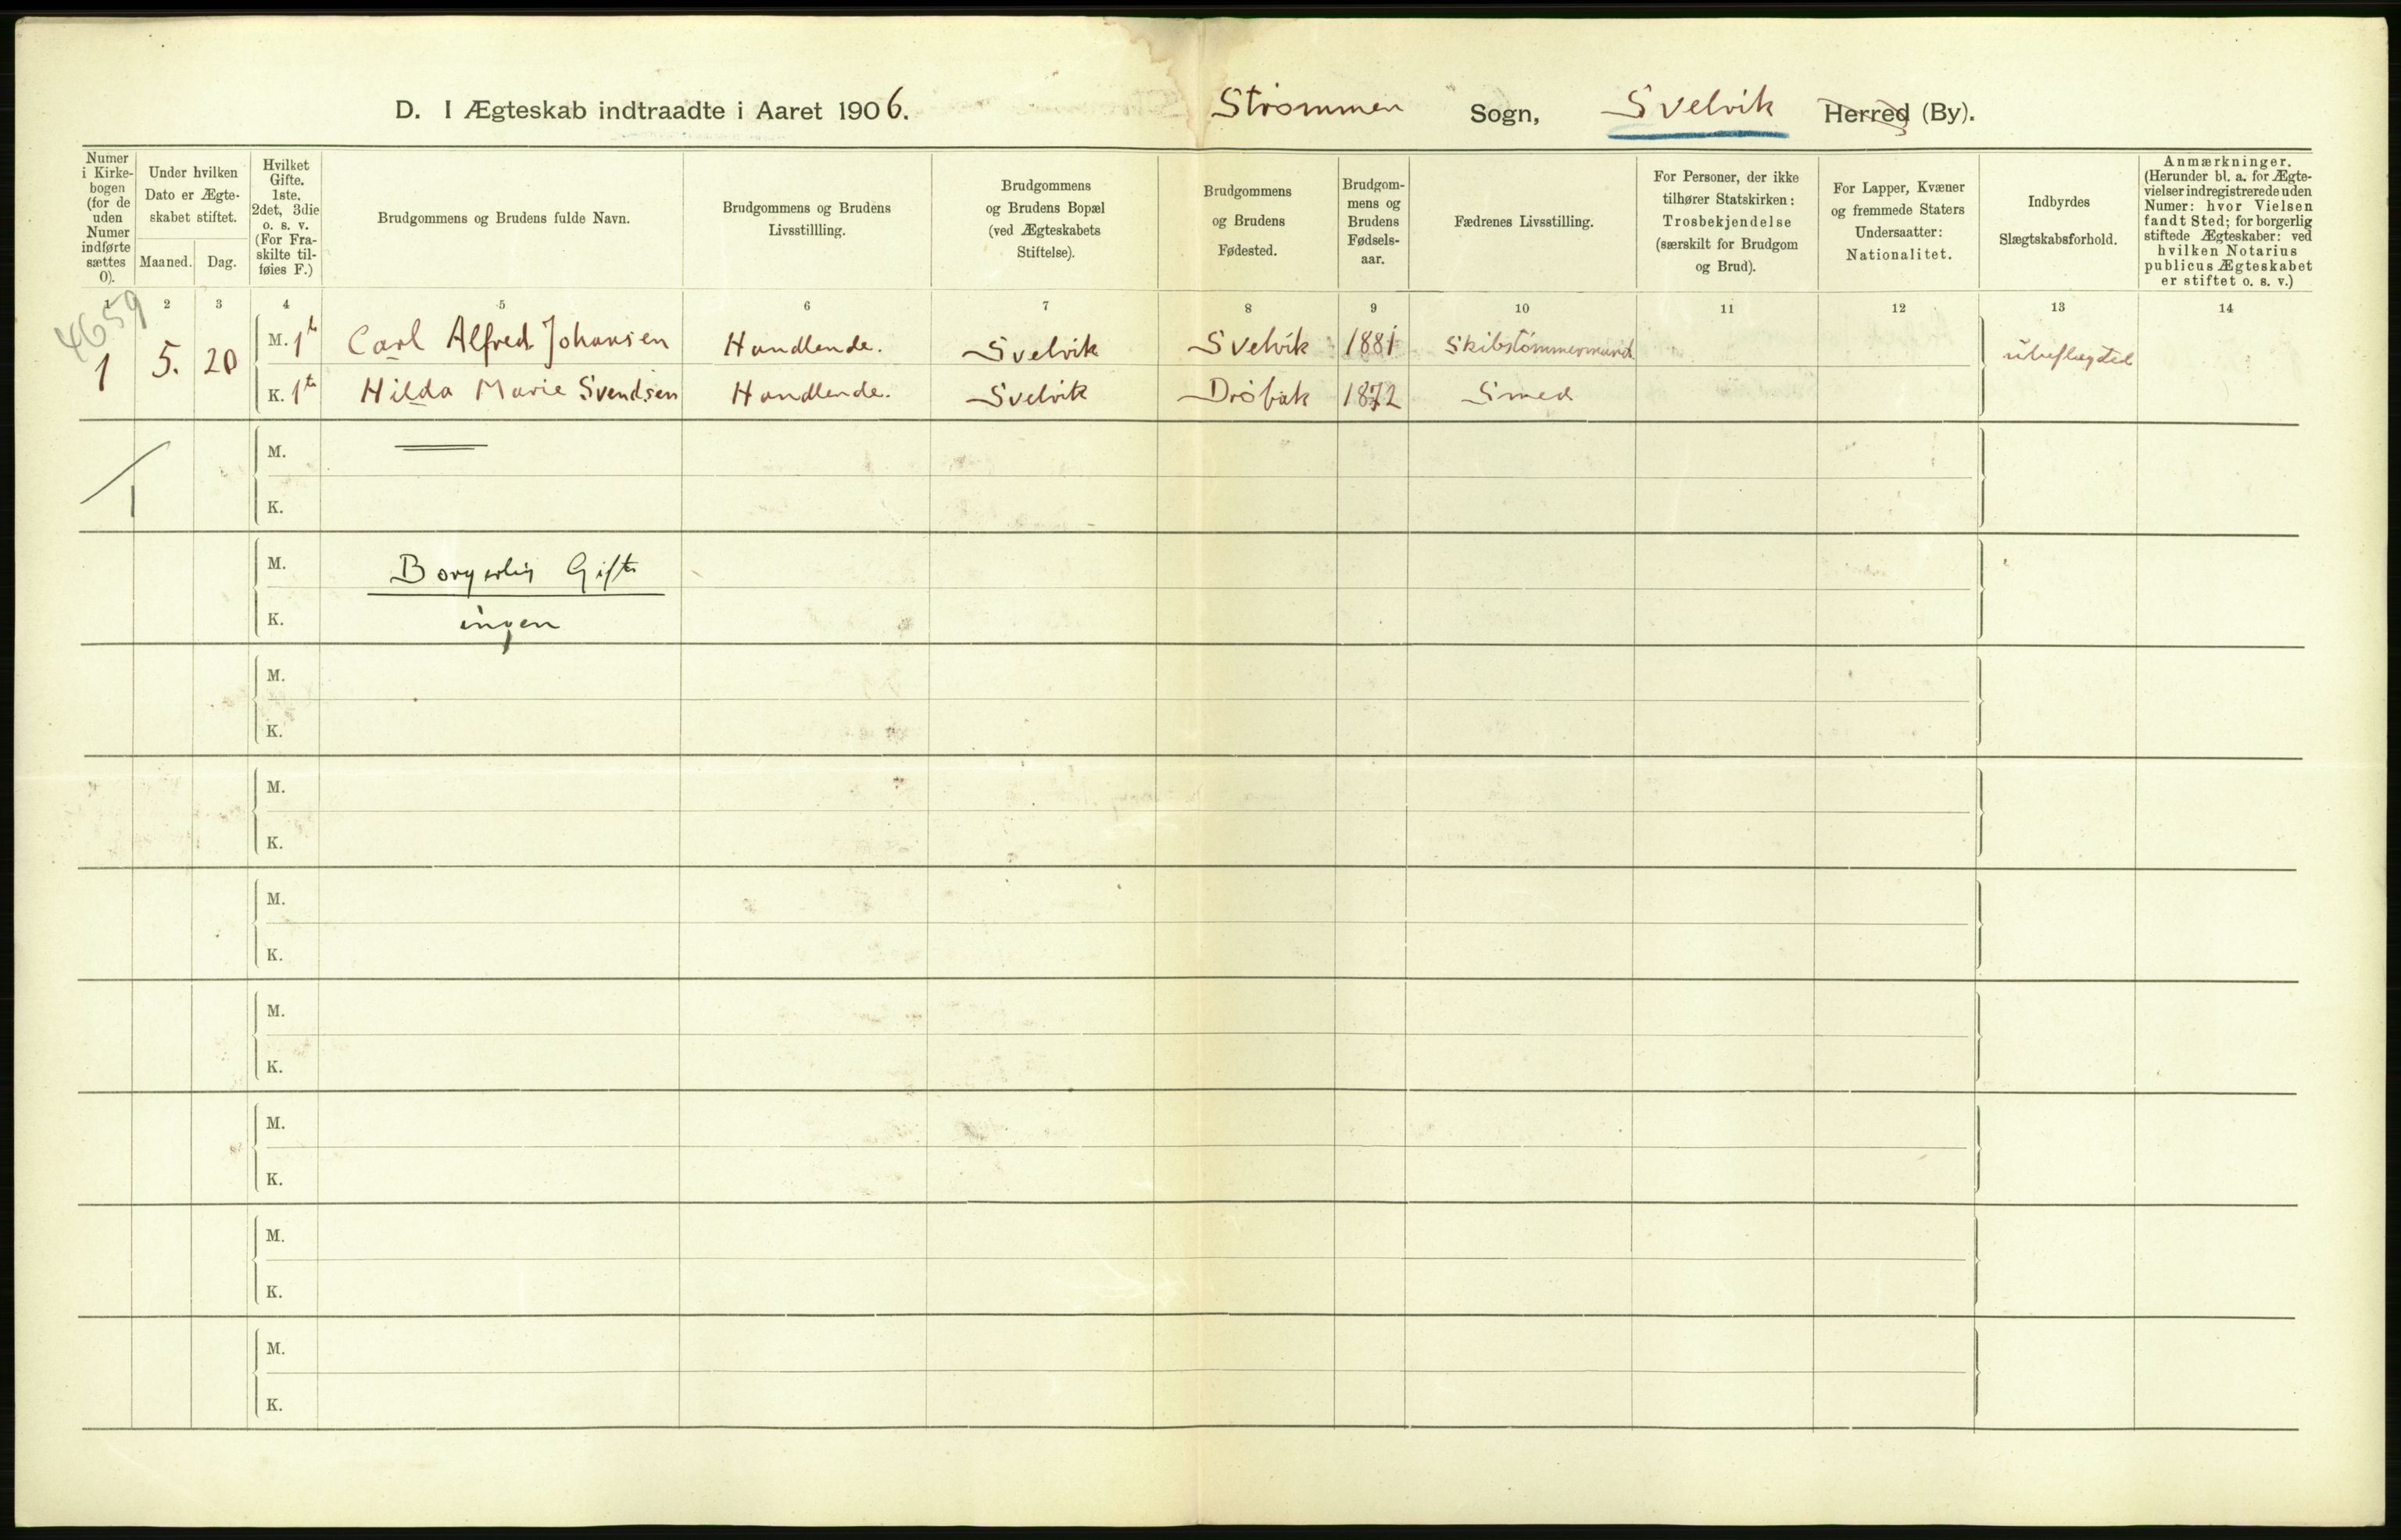 D. I Ægteskab indtraadte i Aaret 1906. Strømmen Sogn, Svelvik Herred (By).
Numer
i Kirke-
bogen
(for de
uden
Numer
indførte
sættes
0).
Under hvilken
Dato er Ægte-
skabet stiftet.
Maaned.
Dag.
Hvilket
Gifte.
1ste.
2det, 3die
o. s. v.
(For Fra-
skilte til-
føies F.)
Brudgommens og Brudens fulde Navn.
Brudgommens og Brudens
Livsstillling.
Brudgommens
og Brudens Bopæl
(ved Ægteskabets
Stiftelse).
Brudgommens
og Brudens
Fødested.
Brudgom-
mens og
Brudens
Fødsels-
aar.
Fædrenes Livsstilling.
For Personer, der ikke
tilhører Statskirken:
Trosbekjendelse
(særskilt for Brudgom
og Brud).
For Lapper, Kvæner
og fremmede Staters
Undersaatter:
Nationalitet.
Indbyrdes
Slægtskabsforhold.
Anmærkninger.
(Herunder bl. a. for Ægte-
vielser indregistrerede uden
Numer: hvor Vielsen
fandt Sted; for borgerlig
stiftede Ægteskaber: ved
hvilken Notarius
publicus Ægteskabet
er stiftet o. s. v.)
1 2 3 4 5 6 7 8 9 10 11 12 13 14
4659
1 5. 20
M. 1ste Carl Alfred Johansen Handlende. Svelvik Svelvik 1881 Skibstømmermand ubeslægted
K. 1ste Hilda Marie Svendsen Handlende. Svelvik Drøbak 1872 Smed
M.
K.
1
M. Borgerlig Gifte
K. ingen
M.
K.
M.
K.
M.
K.
M.
K.
M.
K.
M.
K.
M.
K.